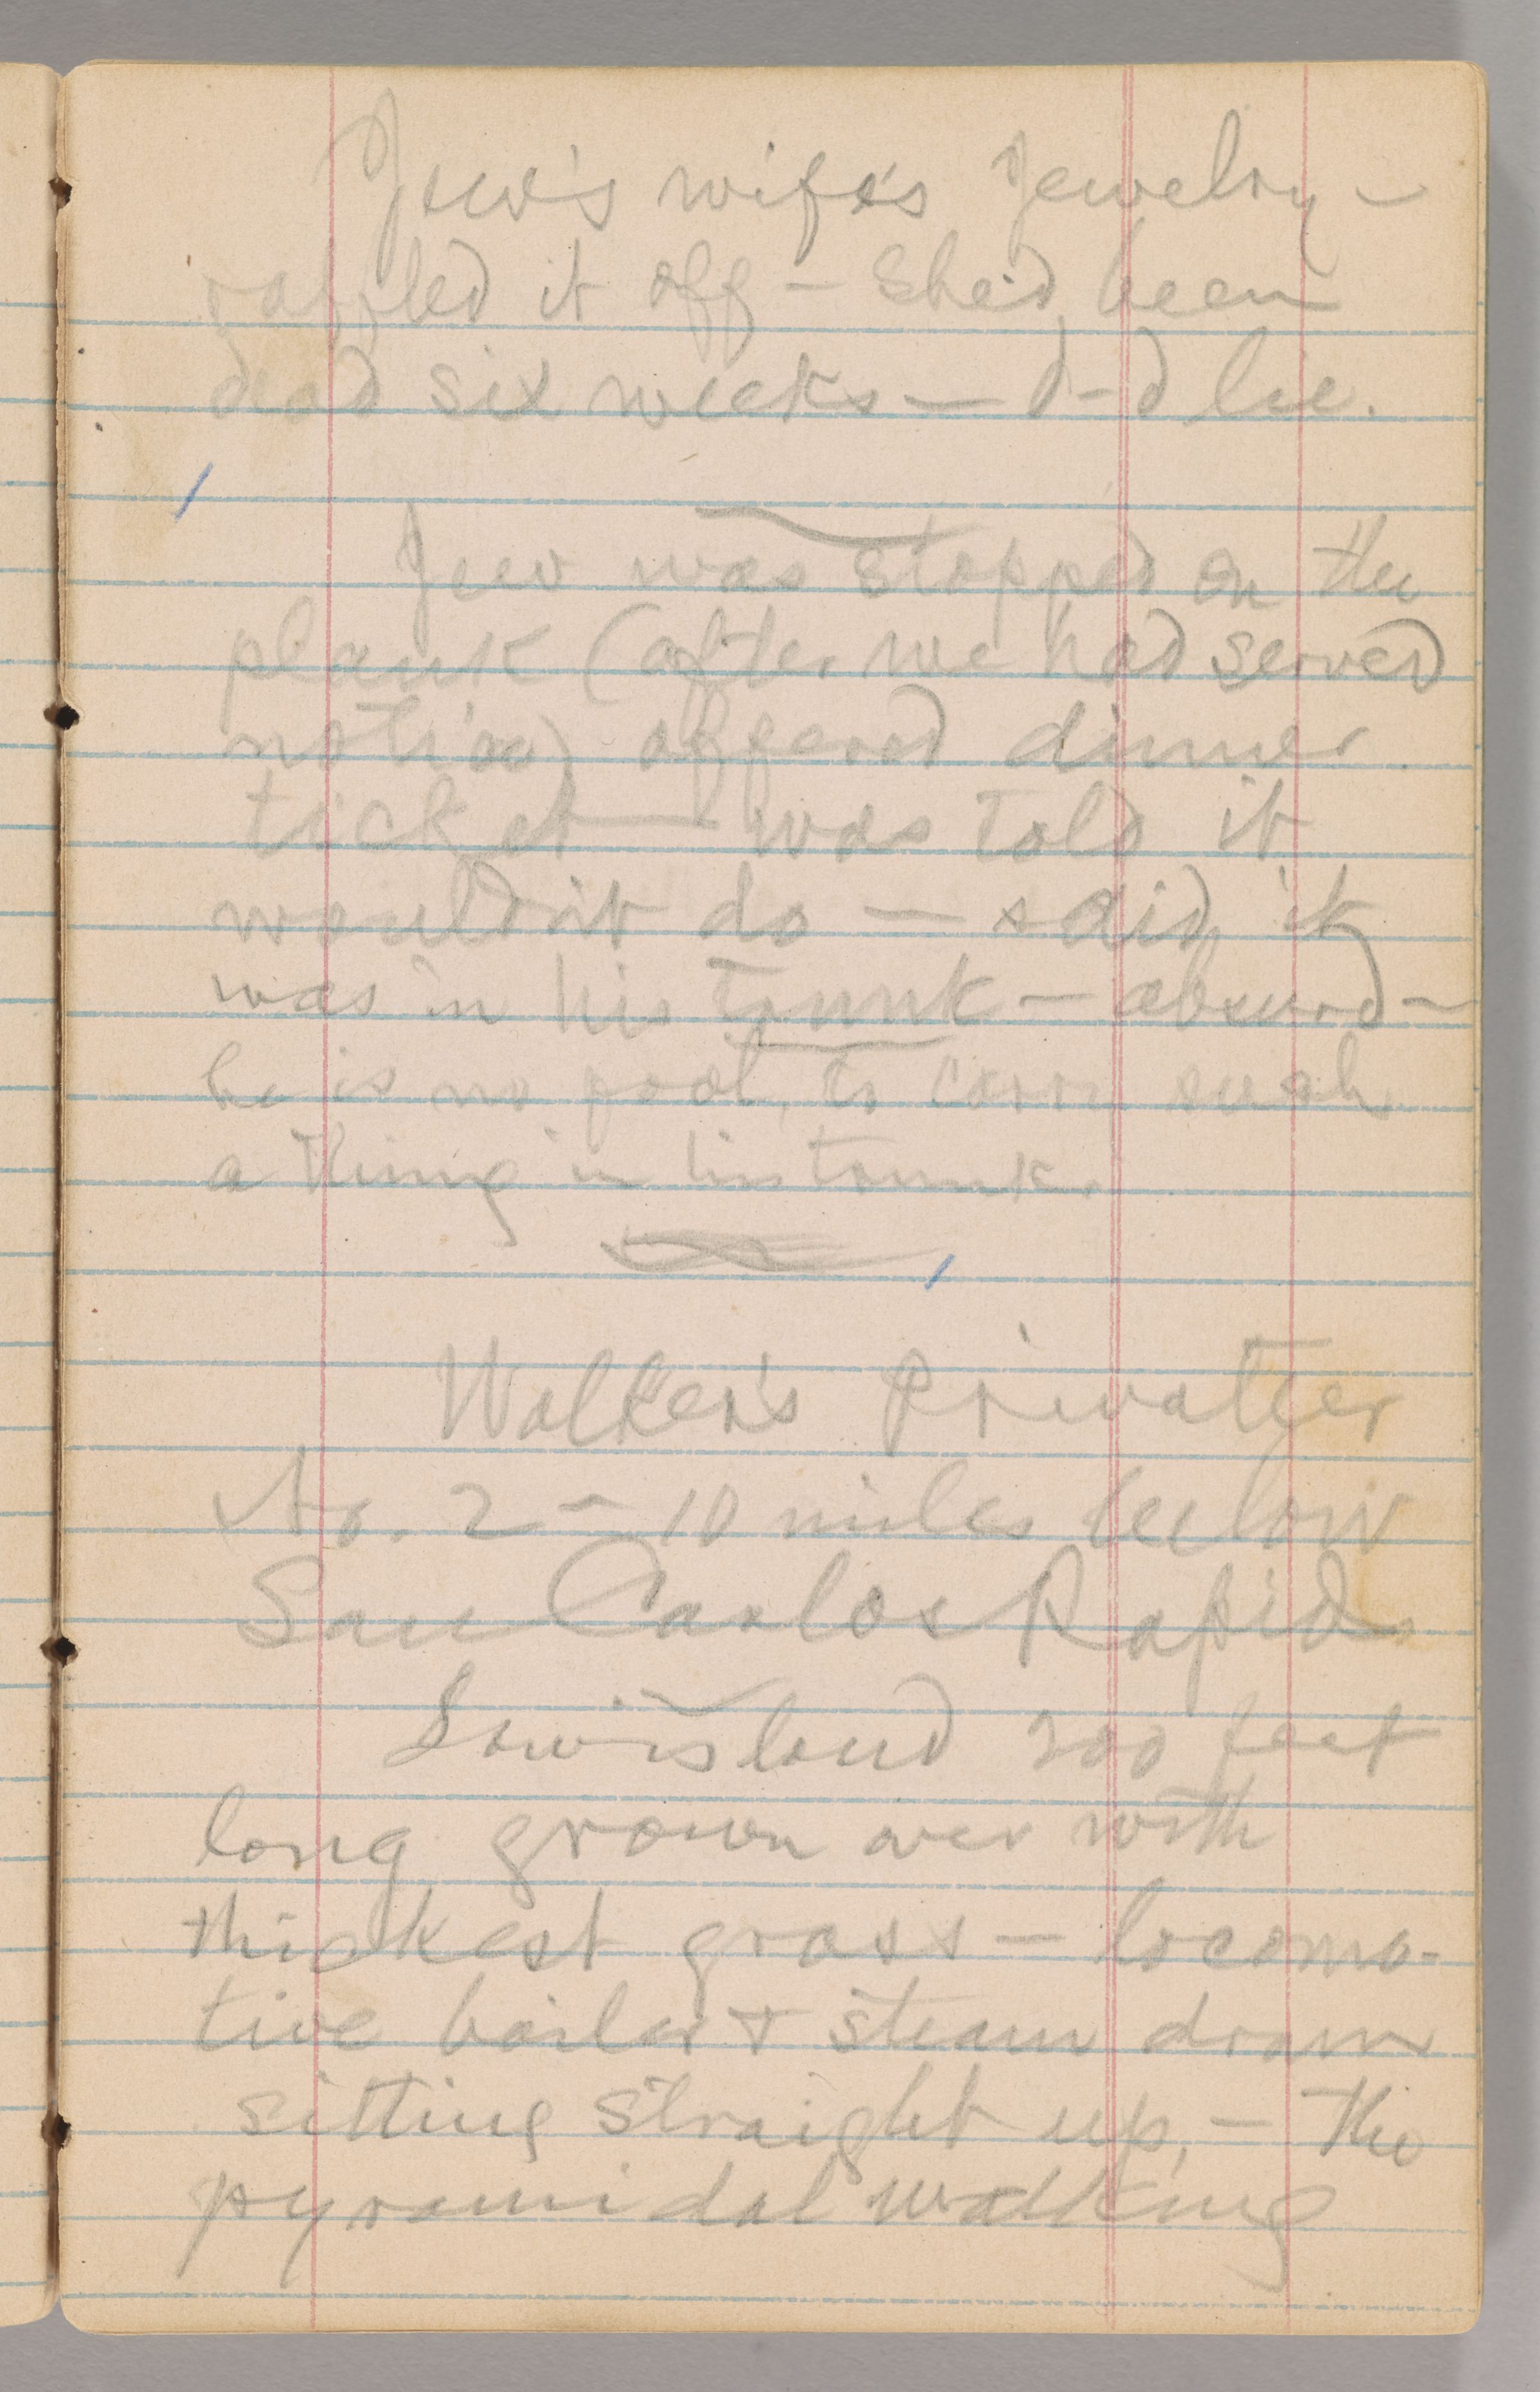 Jew's wife's Jewelry —
raffled it off — She'd been
dead six weeks — d—d lie.
Jew was stopped on the
plank (after we had served
notice) offered dinner
ticket — was told it
wouldn't do — said it
was in his trunk — absurd —
he is no fool, to carry such
a thing in his trunk.
Walker's Privateer
No. 2 — 10 miles below
San Carlos Rapids
Low island 200 feet
long grown over with
thickest grass — locomo-
tive boiler & steam drum
sitting straight up, — the
pyramidal walking